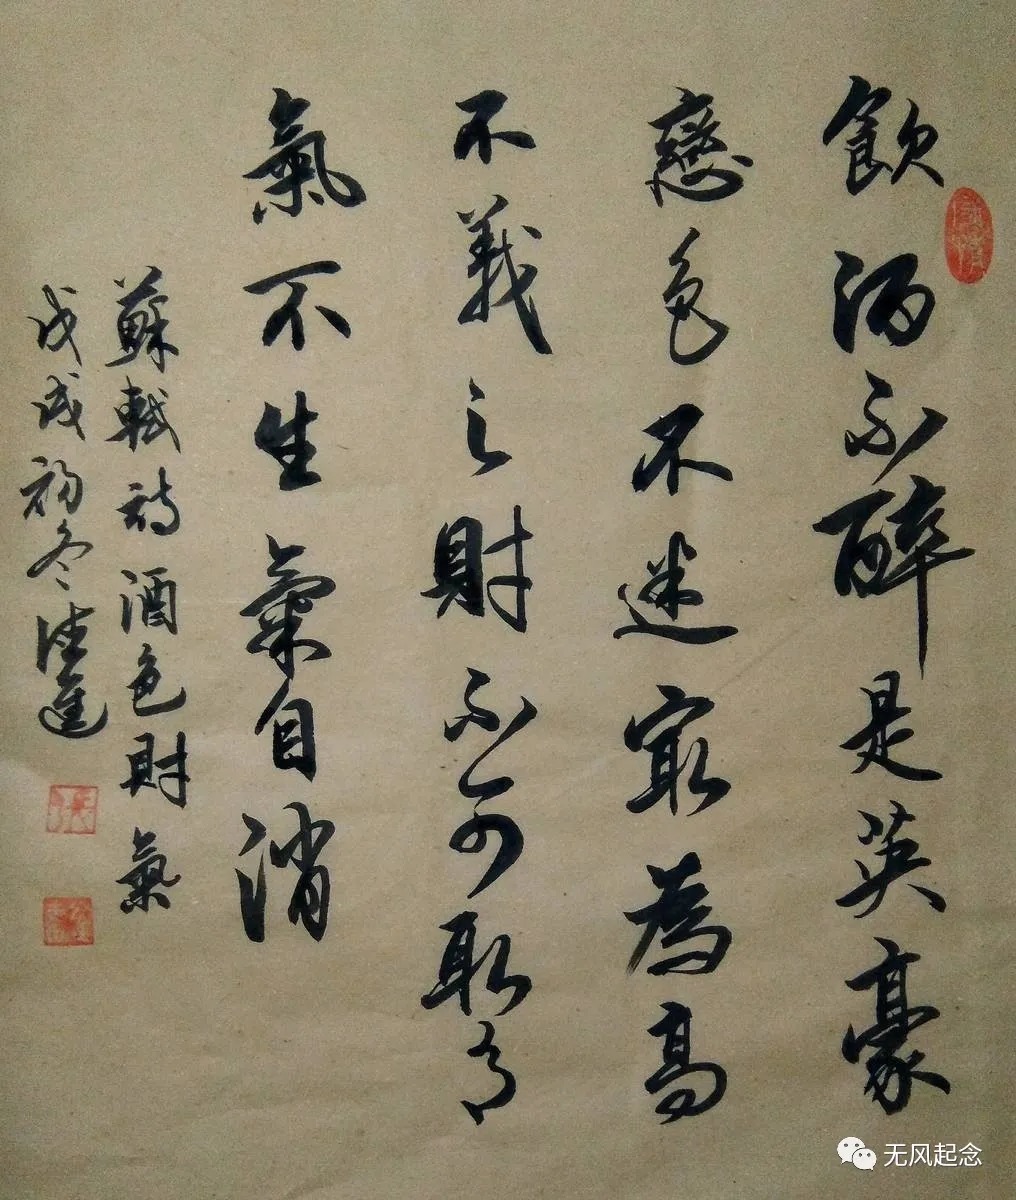 飲酒不醉是英豪
戀色不迷最為高
不義之財不可取有
氣不生氣自消
蘇軾詩酒色財氣
戊戌初冬
无风起念